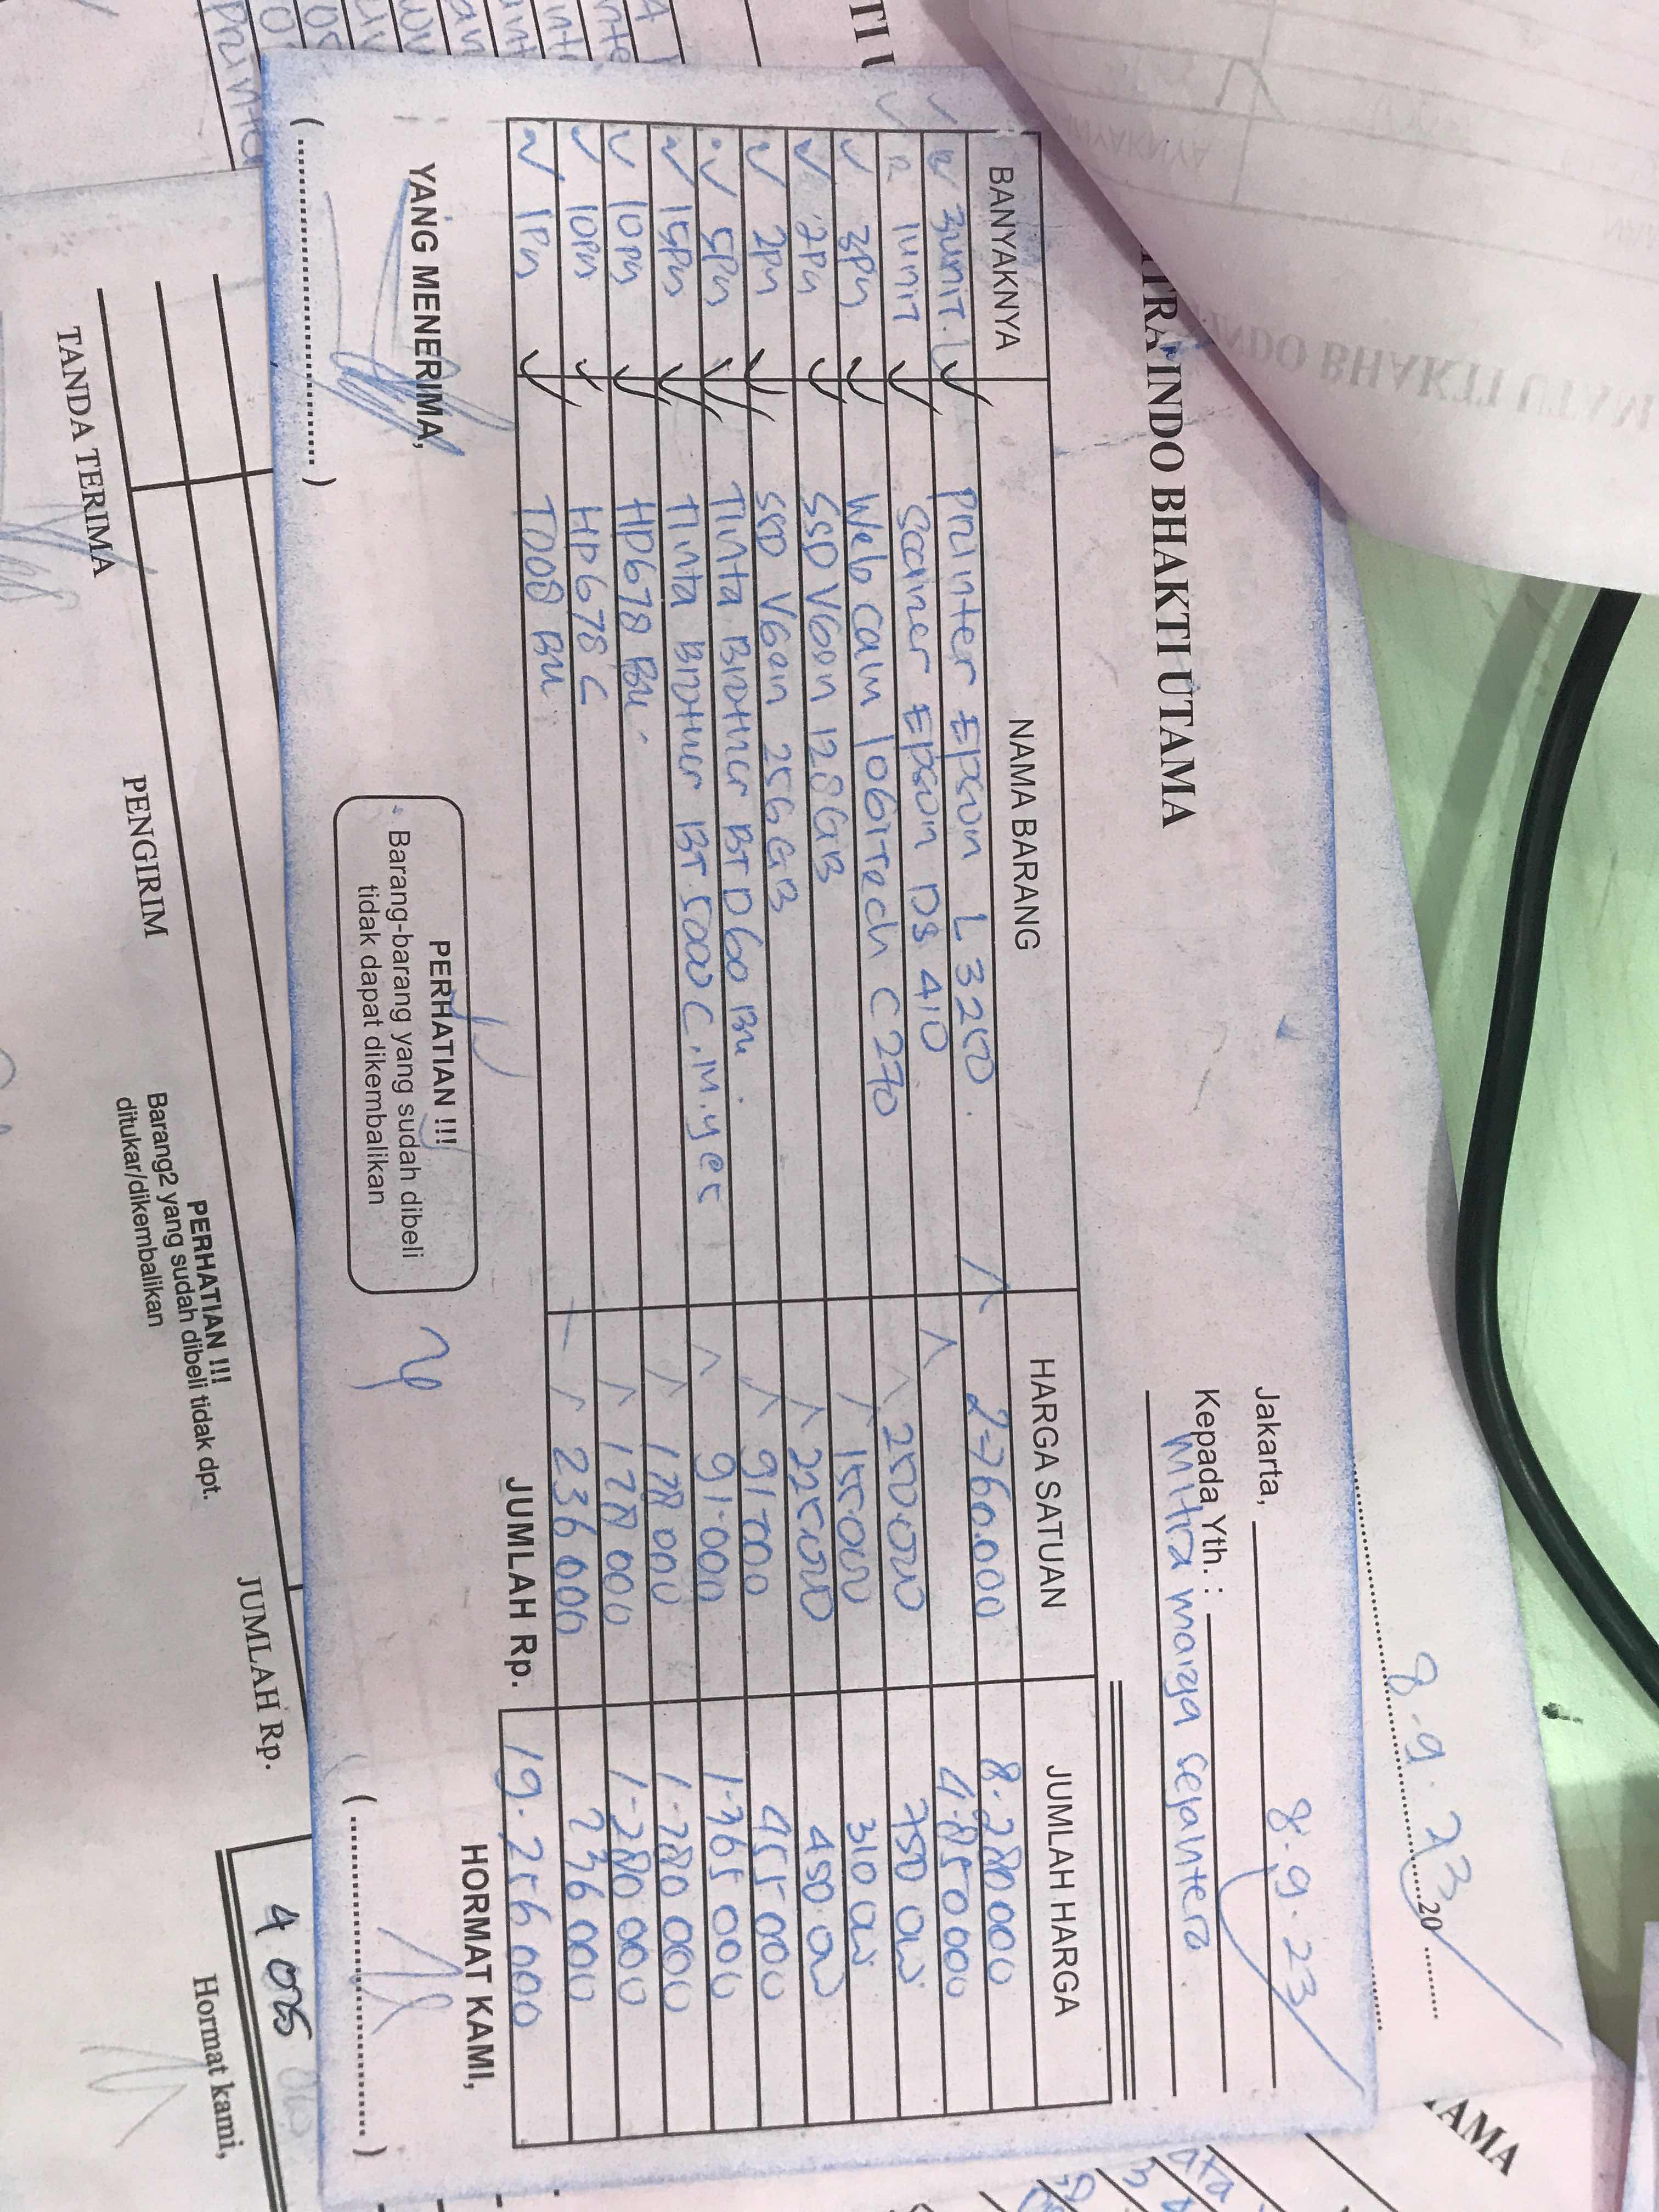 TRA INDO BHAKTI UTAMA
Jakarta, 8.9.23
Kepada Yth. :
Mitra marga sejahtera
BANYAKNYA NAMA BARANG HARGA SATUAN JUMLAH HARGA
3unit Printer Epson L 3250 2.760.000 8.280.000
1unit Scaner Epson DS 410 4.850.000
3Pcs Web Cam logitech C270 250.000 750.000
2Pcs SSD VGen 128GB 155.000 310.000
2Pcs SSD VGen 256GB 225.000 450.000
5Pcs Tinta Brother BTD60 Bk. 91.000 455.000
15Pcs Tinta Brother BT 5000 C.M.Yer 91.000 1.365.000
10Pcs HP678 Bk. 178.000 1.780.000
10Pcs HP678 C 178.000 1.780.000
1Pcs T008 Bk 236.000 236.000
JUMLAH Rp. 19.256.000
YANG MENERIMA,
PERHATIAN !!!
Barang-barang yang sudah dibeli
tidak dapat dikembalikan
HORMAT KAMI,
8.9.23 20
TANDA TERIMA
PENGIRIM
PERHATIAN !!!
Barang2 yang sudah dibeli tidak dpt.
ditukar/dikembalikan
JUMLAH Rp.
Hormat kami,